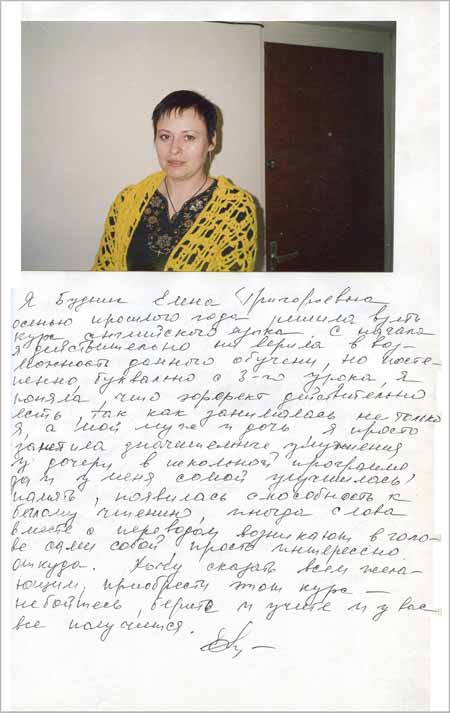 Я Будник Елена Григорьевна,
осенью прошлого года решила взять
курс английского языка. С начала
я действительно не верила в воз-
можность данного обучени, но посте-
пенно, буквально с 3-го урока, я
поняла, что эффект действительно
есть, так как занималась не только
я, а мой муж и дочь я просто
заметила значительные улучшения
у дочери в школьной программе
да и у меня самой улучшилась
память, появилась способность к
беглому чтению, иногда слова
вместе с переводом возникают в голо-
ве сами собой, просто интерессно
откуда. Хочу сказать всем жела-
ющим, приобрести этот курс —
не бойтесь, верьте и учите и у вас
все получится.